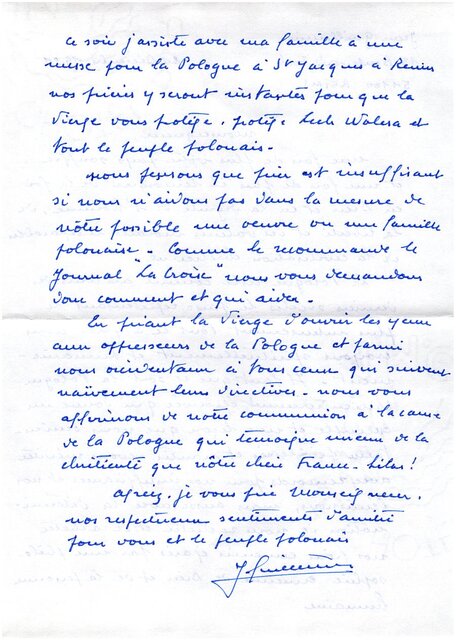 ce soir j'assiste avec ma famille à une
messe pour la Pologne à St Jacques à Reims
nos prières y seront instantes pour que la
Vierge vous protège, protège Lech Walesa et
tout le peuple polonais -
Nous pensons que prier est insuffisant
si nous n'aidons pas dans la mesure de
nôtre possible une oeuvre ou une famille
polonaise - Comme le recommande le
Journal "La Croix" nous vous demandons
donc comment et qui aider -
En priant la Vierge d'ouvrir les yeux
aux oppresseurs de la Pologne et parmi
nous occidentaux à tous ceux qui suivent
naïvement leurs directives - nous vous
affirmons de notre communion à la cause
de la Pologne qui témoigne mieux de la
chrétienté que nôtre chère France - hélas !
Agréez, je vous prie Monseigneur,
nos respectueux sentiments d'amitié
pour vous et le peuple polonais